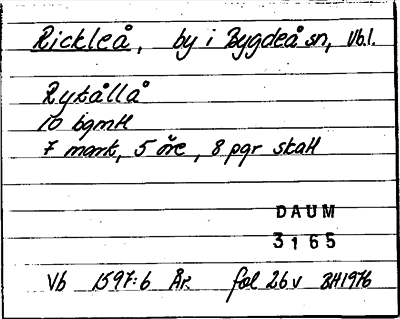 Rickleå, by i Bygdeå sn, Vbl.
Rytållå
10 bgmtl
7 mark, 5 öre, 8 pgr skatt
DAUM
3165
Vb 1597:6 ÅR fol 26v BH1976